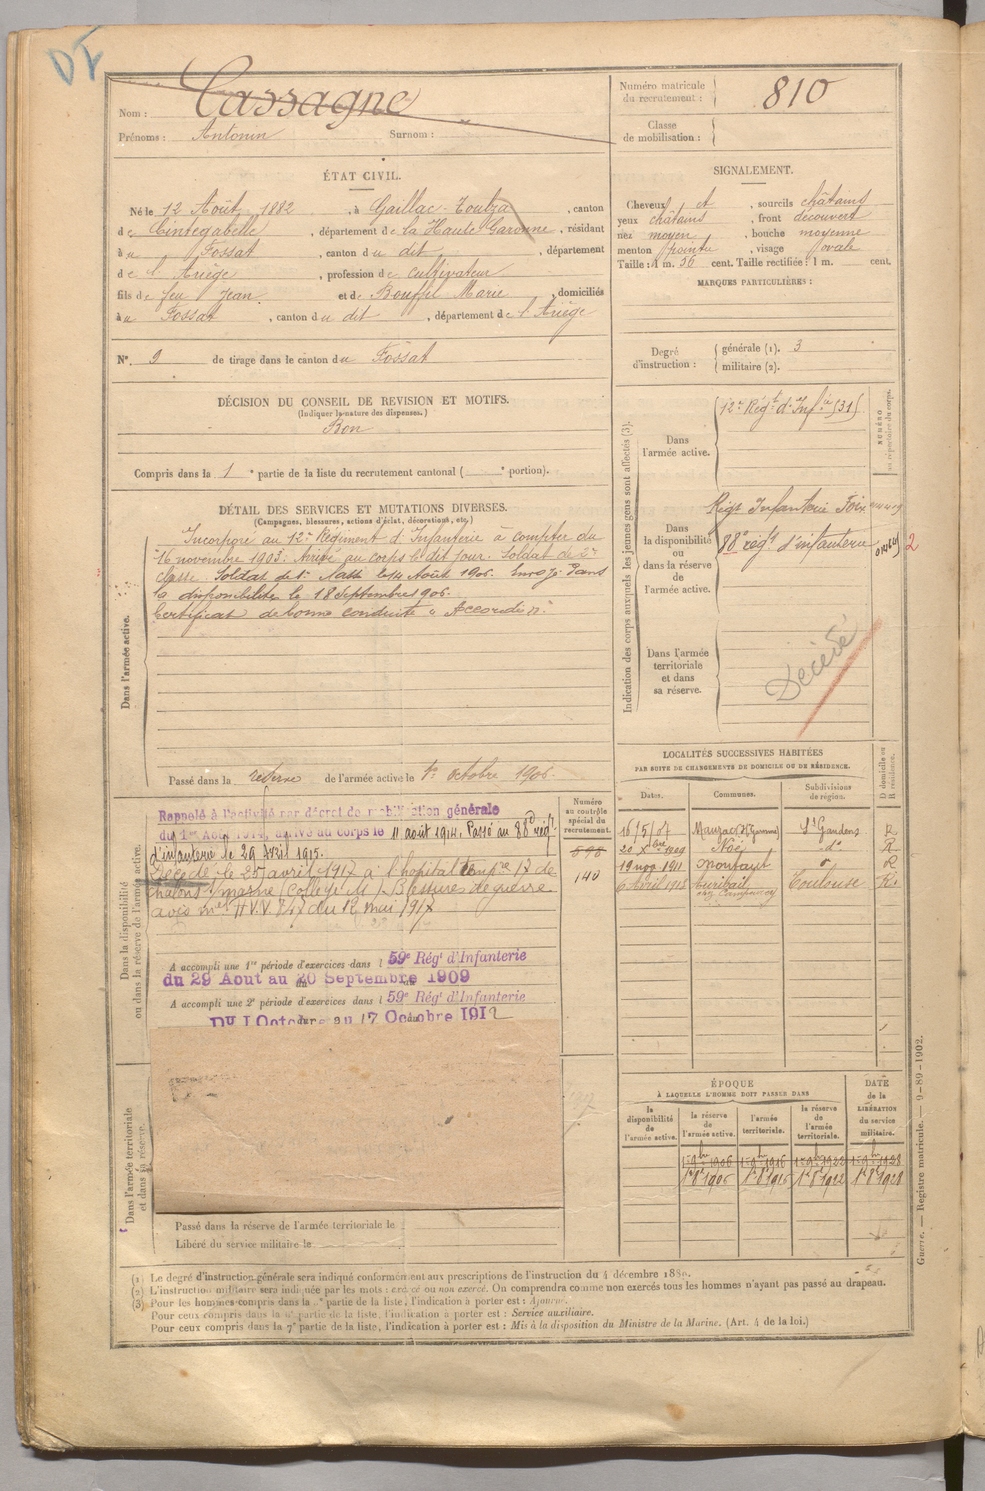 Nom : Cassagne
Prénoms : Antonin Surnom :
Numéro matricule du recrutement : 810
Classe de mobilisation :
ÉTAT CIVIL.
Né le 12 Août 1882, à Gaillac-Toulza, canton
de Cintegabelle, département de la Haute Garonne, résidant
à u Fossat, canton du dit, département
de l'Ariège, profession de cultivateur
fils de feu Jean et de Bouffil Marie, domiciliés
à u Fossat, canton du dit, département de l'Ariège
N° 9 de tirage dans le canton du Fossat
SIGNALEMENT.
Cheveux et, sourcils châtains
yeux châtains, front découvert
nez moyen, bouche moyenne
menton pointu, visage ovale
Taille : 1 m. 56 cent. Taille rectifiée : 1 m. cent.
MARQUES PARTICULIÈRES :
Degré d'instruction : générale (1). 3
militaire (2).
DÉCISION DU CONSEIL DE REVISION ET MOTIFS.
(Indiquer la nature des dispenses.)
Bon
Compris dans la 1e partie de la liste du recrutement cantonal ( e portion).
DÉTAIL DES SERVICES ET MUTATIONS DIVERSES.
(Campagnes, blessures, actions d'éclat, décorations, etc.)
Dans l'armée active.
Incorporé au 12e Régiment d'Infanterie à compter du
16 novembre 1903. Arrivé au corps le dit jour. Soldat de 2e
classe. Soldat de 1e classe le 14 Août 1905. Envoyé dans
la disponibilité le 18 Septembre 1906.
Certificat de bonne conduite "Accordé".
Passé dans la réserve de l'armée active le 1er octobre 1906
Indication des corps auxquels les jeunes gens sont affectés (3).
NUMÉRO au répertoire du corps.
Dans l'armée active.
12e Régt d'Infie (31)
Dans la disponibilité ou dans la réserve de l'armée active.
Régt Infanterie Foix
88e régt d'infanterie
2
Dans l'armée territoriale et dans sa réserve.
Décédé
LOCALITÉS SUCCESSIVES HABITÉES
PAR SUITE DE CHANGEMENTS DE DOMICILE OU DE RÉSIDENCE.
Dates. Communes. Subdivisions de région. D domicile ou R résidence.
16/5/07 Mauzac (Hte Garonne) St Gaudens R
20 Xbre 1909 Noé do R
1911 do R
6 Avril 1913 Toulouse R
Dans la disponibilité ou dans la réserve de l'armée active.
Numéro au contrôle spécial du recrutement.
140
Rappelé à l'activité par décret de mobilisation générale
du 1er Août 1914, arrivé au corps le 11 août 1914. Passé au 88e régt
d'infanterie le 29 Avril 1915.
Décédé le 25 avril 1917 à l'hôpital tempre 17 de
Châlons s/marne (Collège M.) Blessures de guerre
avis mel H.V.V. 247 du 12 mai 1917
A accompli une 1re période d'exercices dans l 59e Régt d'Infanterie
du 29 Aout au 20 Septembre 1909
A accompli une 2e période d'exercices dans l 59e Régt d'Infanterie
Du 1 Octobre au 17 Octobre 1912
Dans l'armée territoriale et dans sa réserve.
Passé dans la réserve de l'armée territoriale le
Libéré du service militaire le
ÉPOQUE
À LAQUELLE L'HOMME DOIT PASSER DANS
DATE de la LIBÉRATION du service militaire.
la disponibilité de l'armée active. la réserve de l'armée active. l'armée territoriale. la réserve de l'armée territoriale.
1er 9bre 1906 1er 9bre 1916 1er 9bre 1922 1er 9bre 1928
1er 8bre 1906 1er 8bre 1916 1er 8bre 1922 1er 8bre 1928
(1) Le degré d'instruction générale sera indiqué conformément aux prescriptions de l'instruction du 4 décembre 1889.
(2) L'instruction militaire sera indiquée par les mots : exercé ou non exercé. On comprendra comme non exercés tous les hommes n'ayant pas passé au drapeau.
(3) Pour les hommes compris dans la e partie de la liste, l'indication à porter est : Ajourné.
Pour ceux compris dans la e partie de la liste, l'indication à porter est : Service auxiliaire.
Pour ceux compris dans la 7e partie de la liste, l'indication à porter est : Mis à la disposition du Ministre de la Marine. (Art. 4 de la loi.)
Guerre. — Registre matricule. — 9-89-1902.